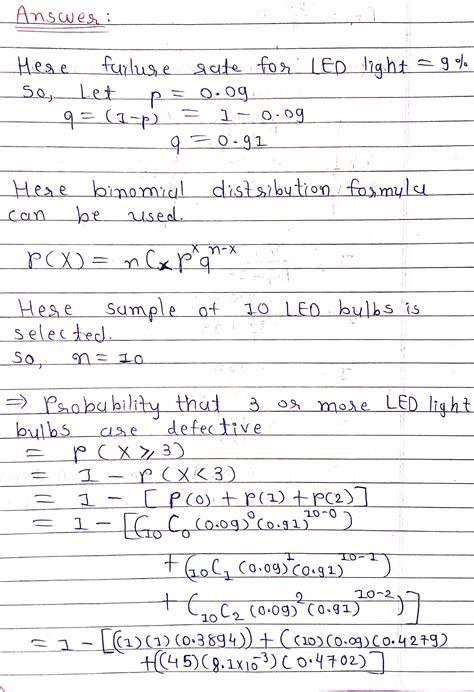 Answer:
Here failure rate for LED light = 9%
So, Let p = 0.09
q = (1-p) = 1 - 0.09
q = 0.91
Here binomial distribution formula
can be used.
P(X) = nCx p^x q^n-x
Here sample of 10 LED bulbs is
selected.
So, n = 10
⇒ Probability that 3 or more LED light
bulbs are defective
= P(X ≥ 3)
= 1 - P(X < 3)
= 1 - [P(0) + P(1) + P(2)]
= 1 - [(10C0 (0.09)^0 (0.91)^10-0)
+ (10C1 (0.09)^1 (0.91)^10-1)
+ (10C2 (0.09)^2 (0.91)^10-2)]
= 1 - [((1)(1)(0.3894)) + ((10)(0.09)(0.4279)
+ ((45)(8.1x10^-3)(0.4702)]